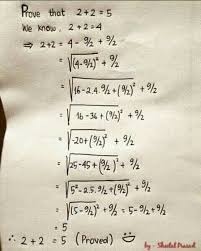 Prove that 2+2=5
We know, 2+2=4
⇒ 2+2 = 4 - 9/2 + 9/2
= √(4-9/2)² + 9/2
= √16-2.4.9/2+(9/2)² + 9/2
= √16-36+(9/2)² + 9/2
= √-20+(9/2)² + 9/2
= √25-45+(9/2)² + 9/2
= √5²-2.5.9/2+(9/2)² + 9/2
= √(5-9/2)² + 9/2 = 5-9/2+9/2
= 5
∴ 2+2 = 5 (Proved)
by -